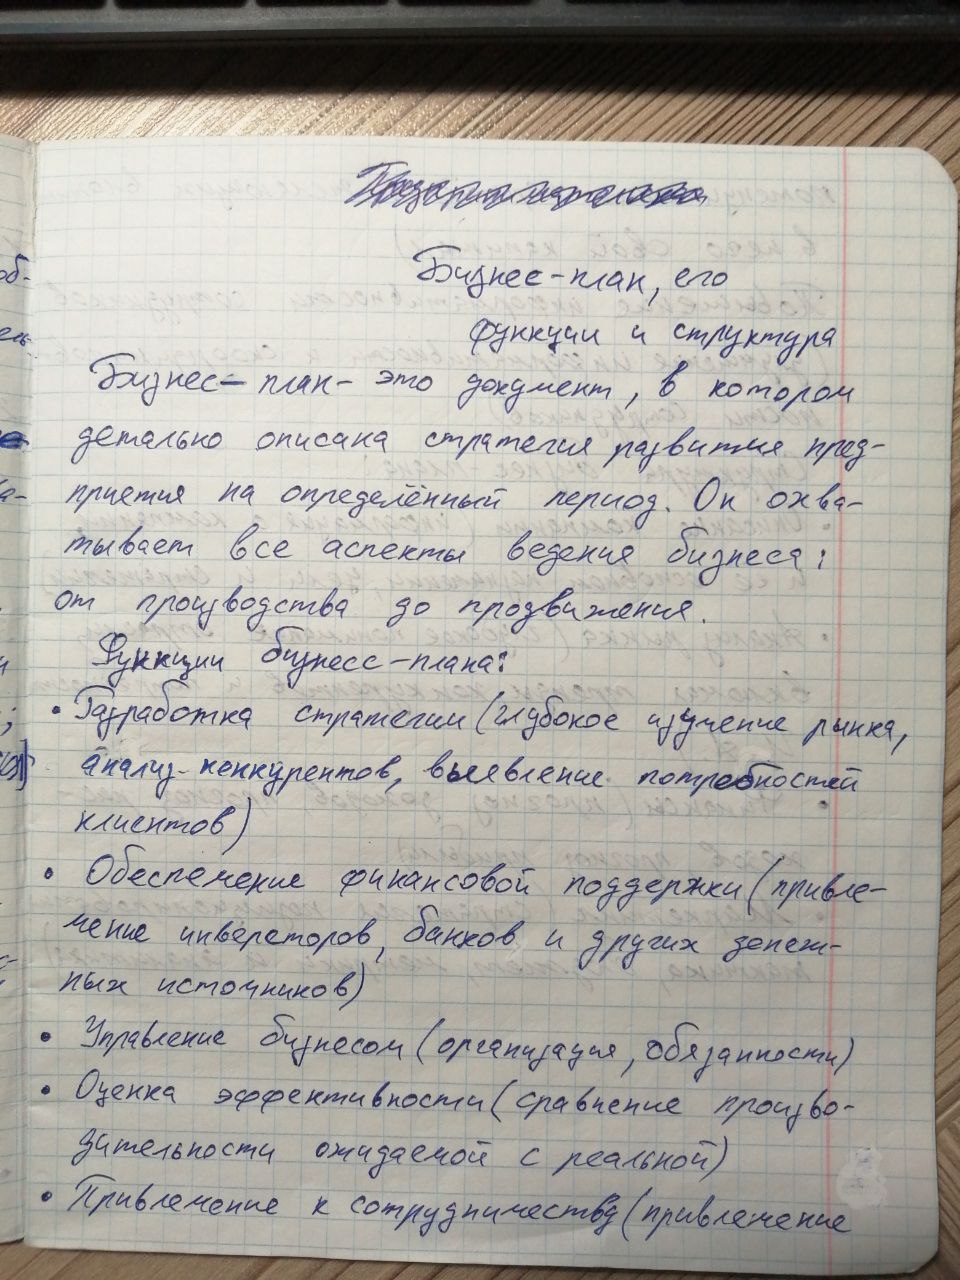 Бизнес-план, его
функции и структура
Бизнес-план - это документ, в котором
детально описана стратегия развития пред-
приятия на определённый период. Он охва-
тывает все аспекты ведения бизнеса:
от производства до продвижения.
Функции бизнесс-плана:
• Разработка стратегии (глубокое изучение рынка,
анализ конкурентов, выявление потребностей
клиентов)
• Обеспечение финансовой поддержки (привле-
чение инвесторов, банков и других денеж-
ных источников)
• Управление бизнесом (организация, обязанности)
• Оценка эффективности (сравнение произво-
дительности ожидаемой с реальной)
• Привлечение к сотрудничеству (привлечение